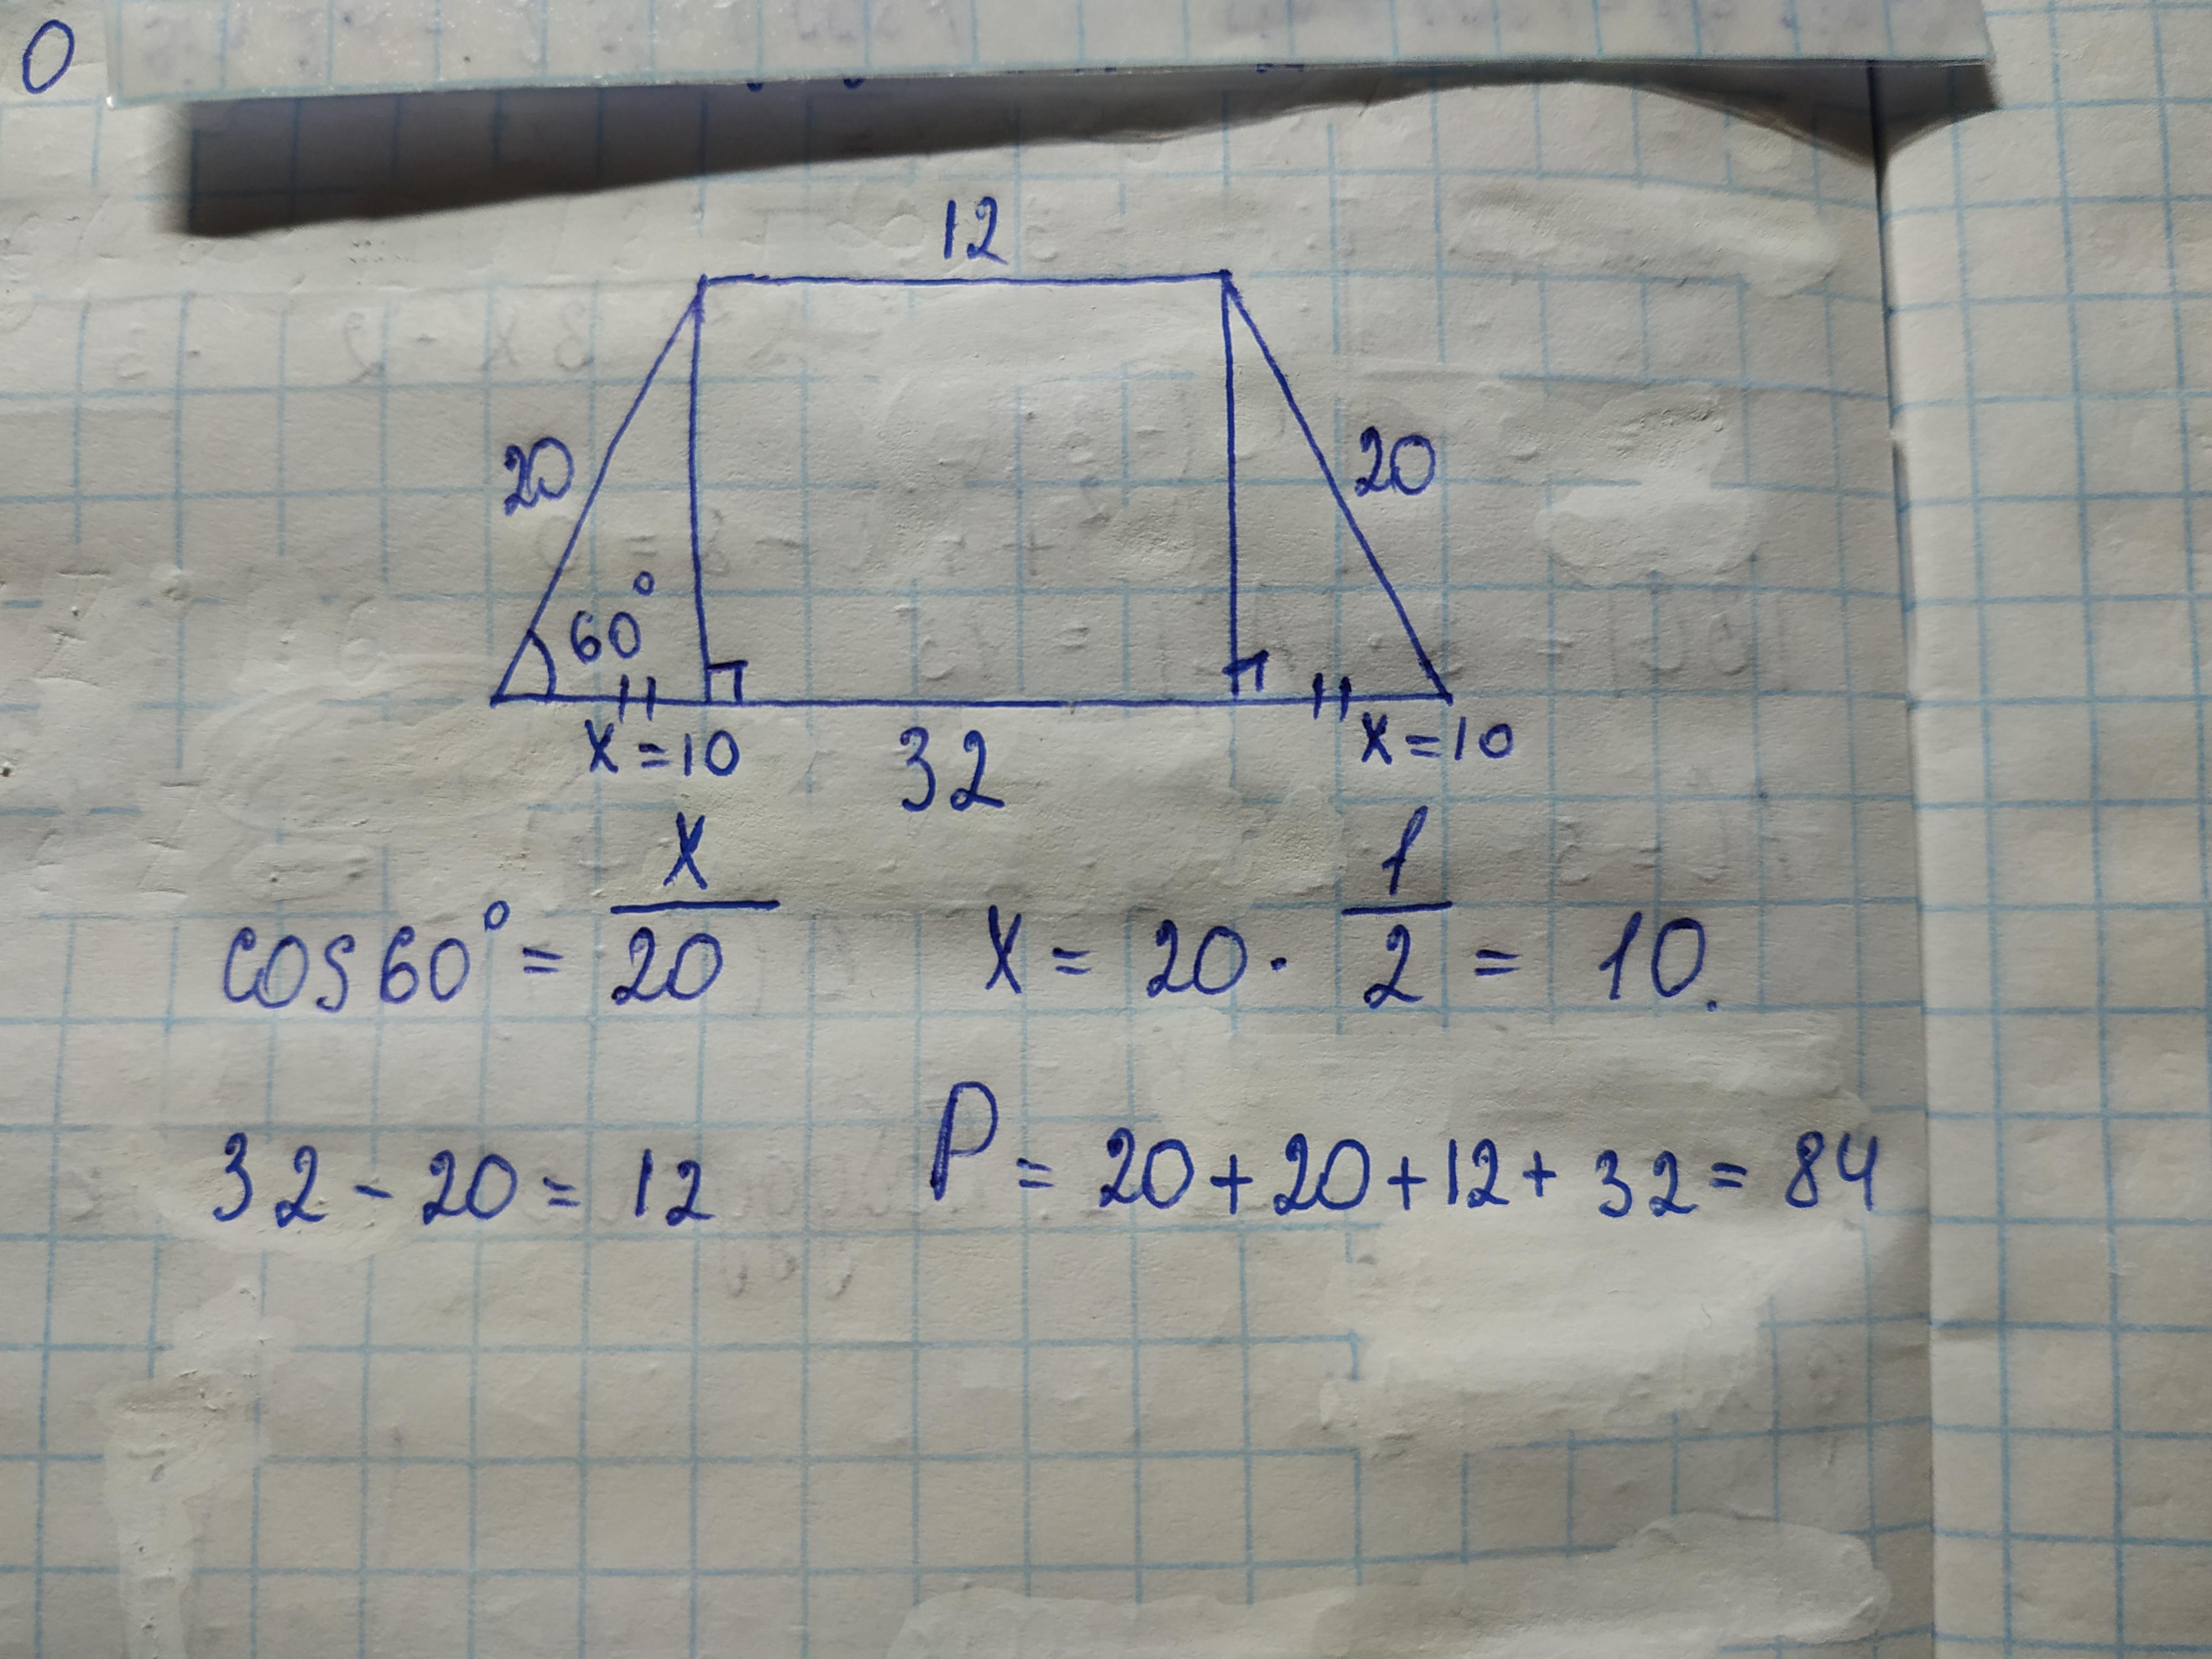 0
12
20 20
60°
x=10 32 x=10
cos60° = x/20 x = 20 · 1/2 = 10.
32 - 20 = 12 P = 20+20+12+32= 84